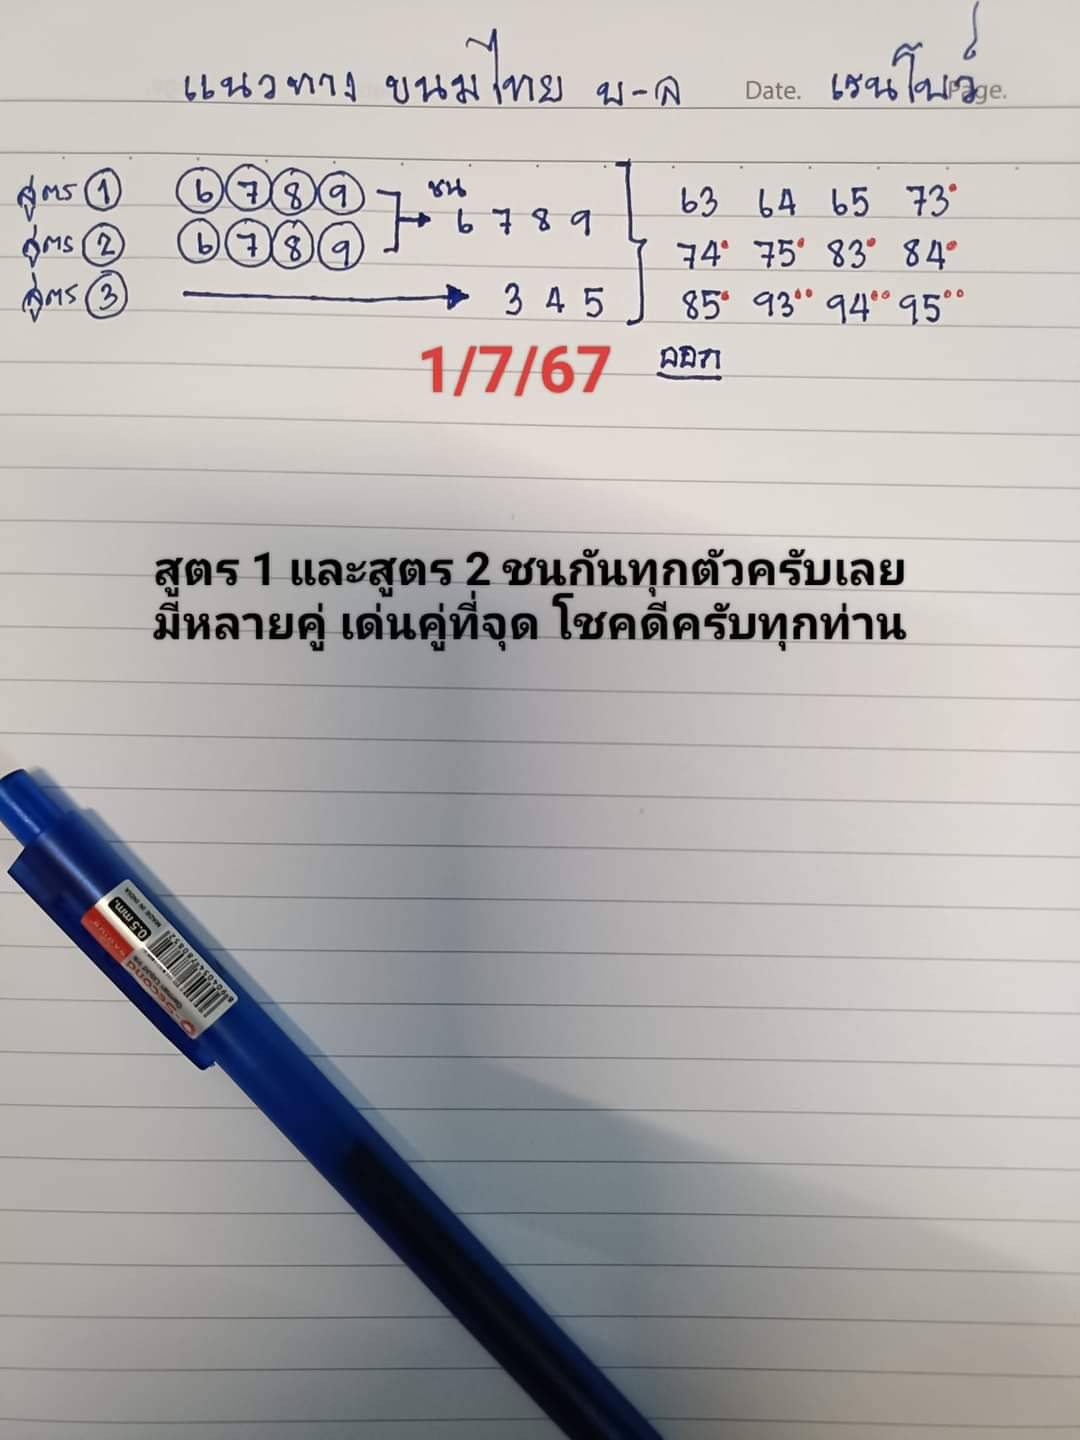 แนวทาง ขนมไทย บ-ล Date. เรนโบว์ Page.
สูตร 1 6 7 8 9 ชน 63 64 65 73
สูตร 2 6 7 8 9 6 7 8 9 74 75 83 84
สูตร 3 3 4 5 85 93 94 95
1/7/67 ออก
สูตร 1 และสูตร 2 ชนกันทุกตัวครับเลย
มีหลายคู่ เด่นคู่ที่จุด โชคดีครับทุกท่าน
0.5 mm.
MADE IN INDIA